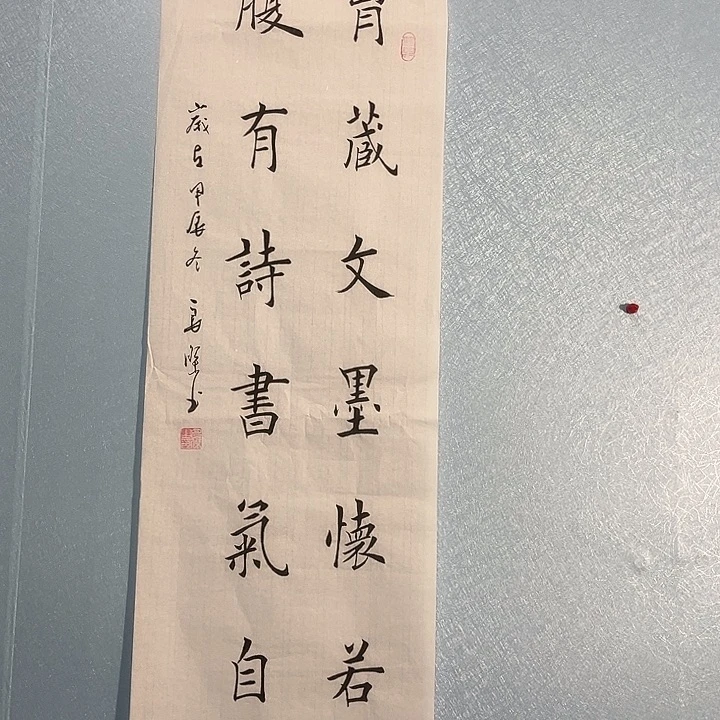 胸藏文墨懷若
腹有詩書氣自
歲在甲辰冬